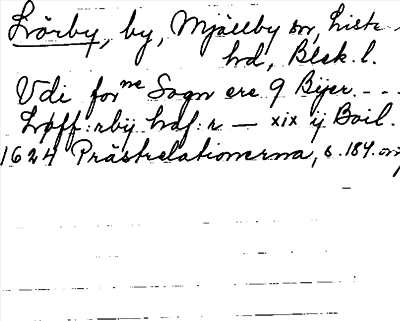 Lörby, by, Mjällby sn, Listers
hd, Blek. l.
Udi for ne Sogn ere 9 Bÿer. - - -
Løff:rbÿ haf:r — xix ij Boil.
1624 Prästrelationerna, s. 184.